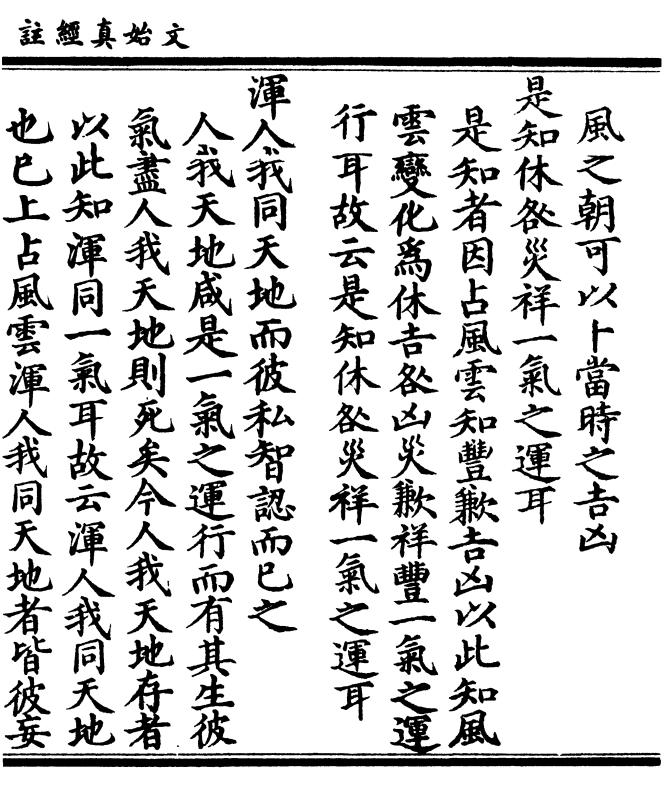 文始真經註
風之朝可以卜當時之吉凶
是知休咎災祥一氣之運耳
是知者因占風雲知豐歉吉凶以此知風
雲變化爲休吉咎凶災歉祥豐一氣之運
行耳故云是知休咎災祥一氣之運耳
渾人我同天地而彼私智認而已之
人我天地咸是一氣之運行而有其生彼
氣盡人我天地則死矣今人我天地存者
以此知渾同一氣耳故云渾人我同天地
也已上占風雲渾人我同天地者皆彼妄